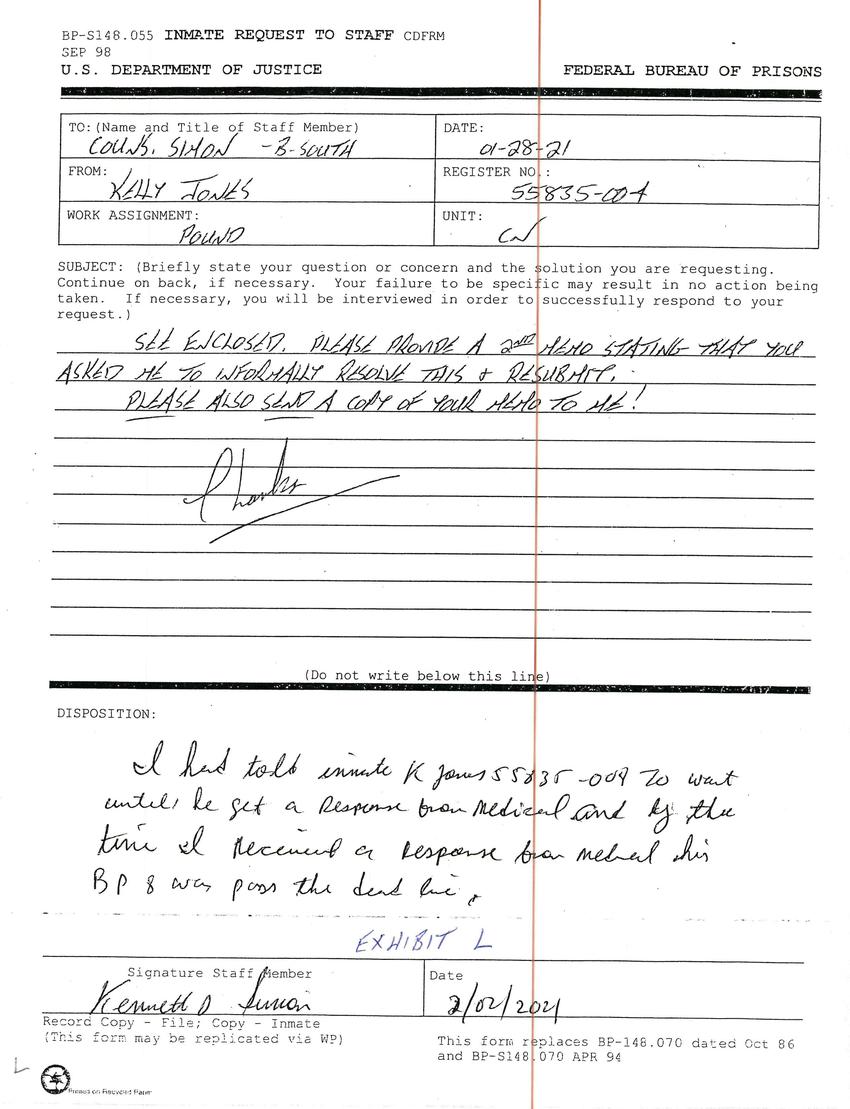 BP-S148.055 INMATE REQUEST TO STAFF CDFRM
SEP 98
U.S. DEPARTMENT OF JUSTICE FEDERAL BUREAU OF PRISONS
TO:(Name and Title of Staff Member) DATE:
COUNS. SIMON -B-SOUTH 01-28-21
FROM: REGISTER NO.:
KELLY JONES 55835-004
WORK ASSIGNMENT: UNIT:
POUND CN
SUBJECT: (Briefly state your question or concern and the solution you are requesting.
Continue on back, if necessary. Your failure to be specific may result in no action being
taken. If necessary, you will be interviewed in order to successfully respond to your
request.)
SEE ENCLOSED. PLEASE PROVIDE A 2ND MEMO STATING THAT YOU
ASKED ME TO INFORMALLY RESOLVE THIS + RESUBMIT.
PLEASE ALSO SEND A COPY OF YOUR MEMO TO ME!
Thanks
(Do not write below this line)
DISPOSITION:
I had told inmate K Jones 55835-004 to wait
until he get a Response from Medical and by the
time I Received a Response from medical his
BP 8 was pass the dead line.
EXHIBIT L
Signature Staff Member Date
Kenneth D Simon 2/02/2021
Record Copy - File; Copy - Inmate
(This form may be replicated via WP) This form replaces BP-148.070 dated Oct 86
and BP-S148.070 APR 94
L
Printed on Recycled Paper